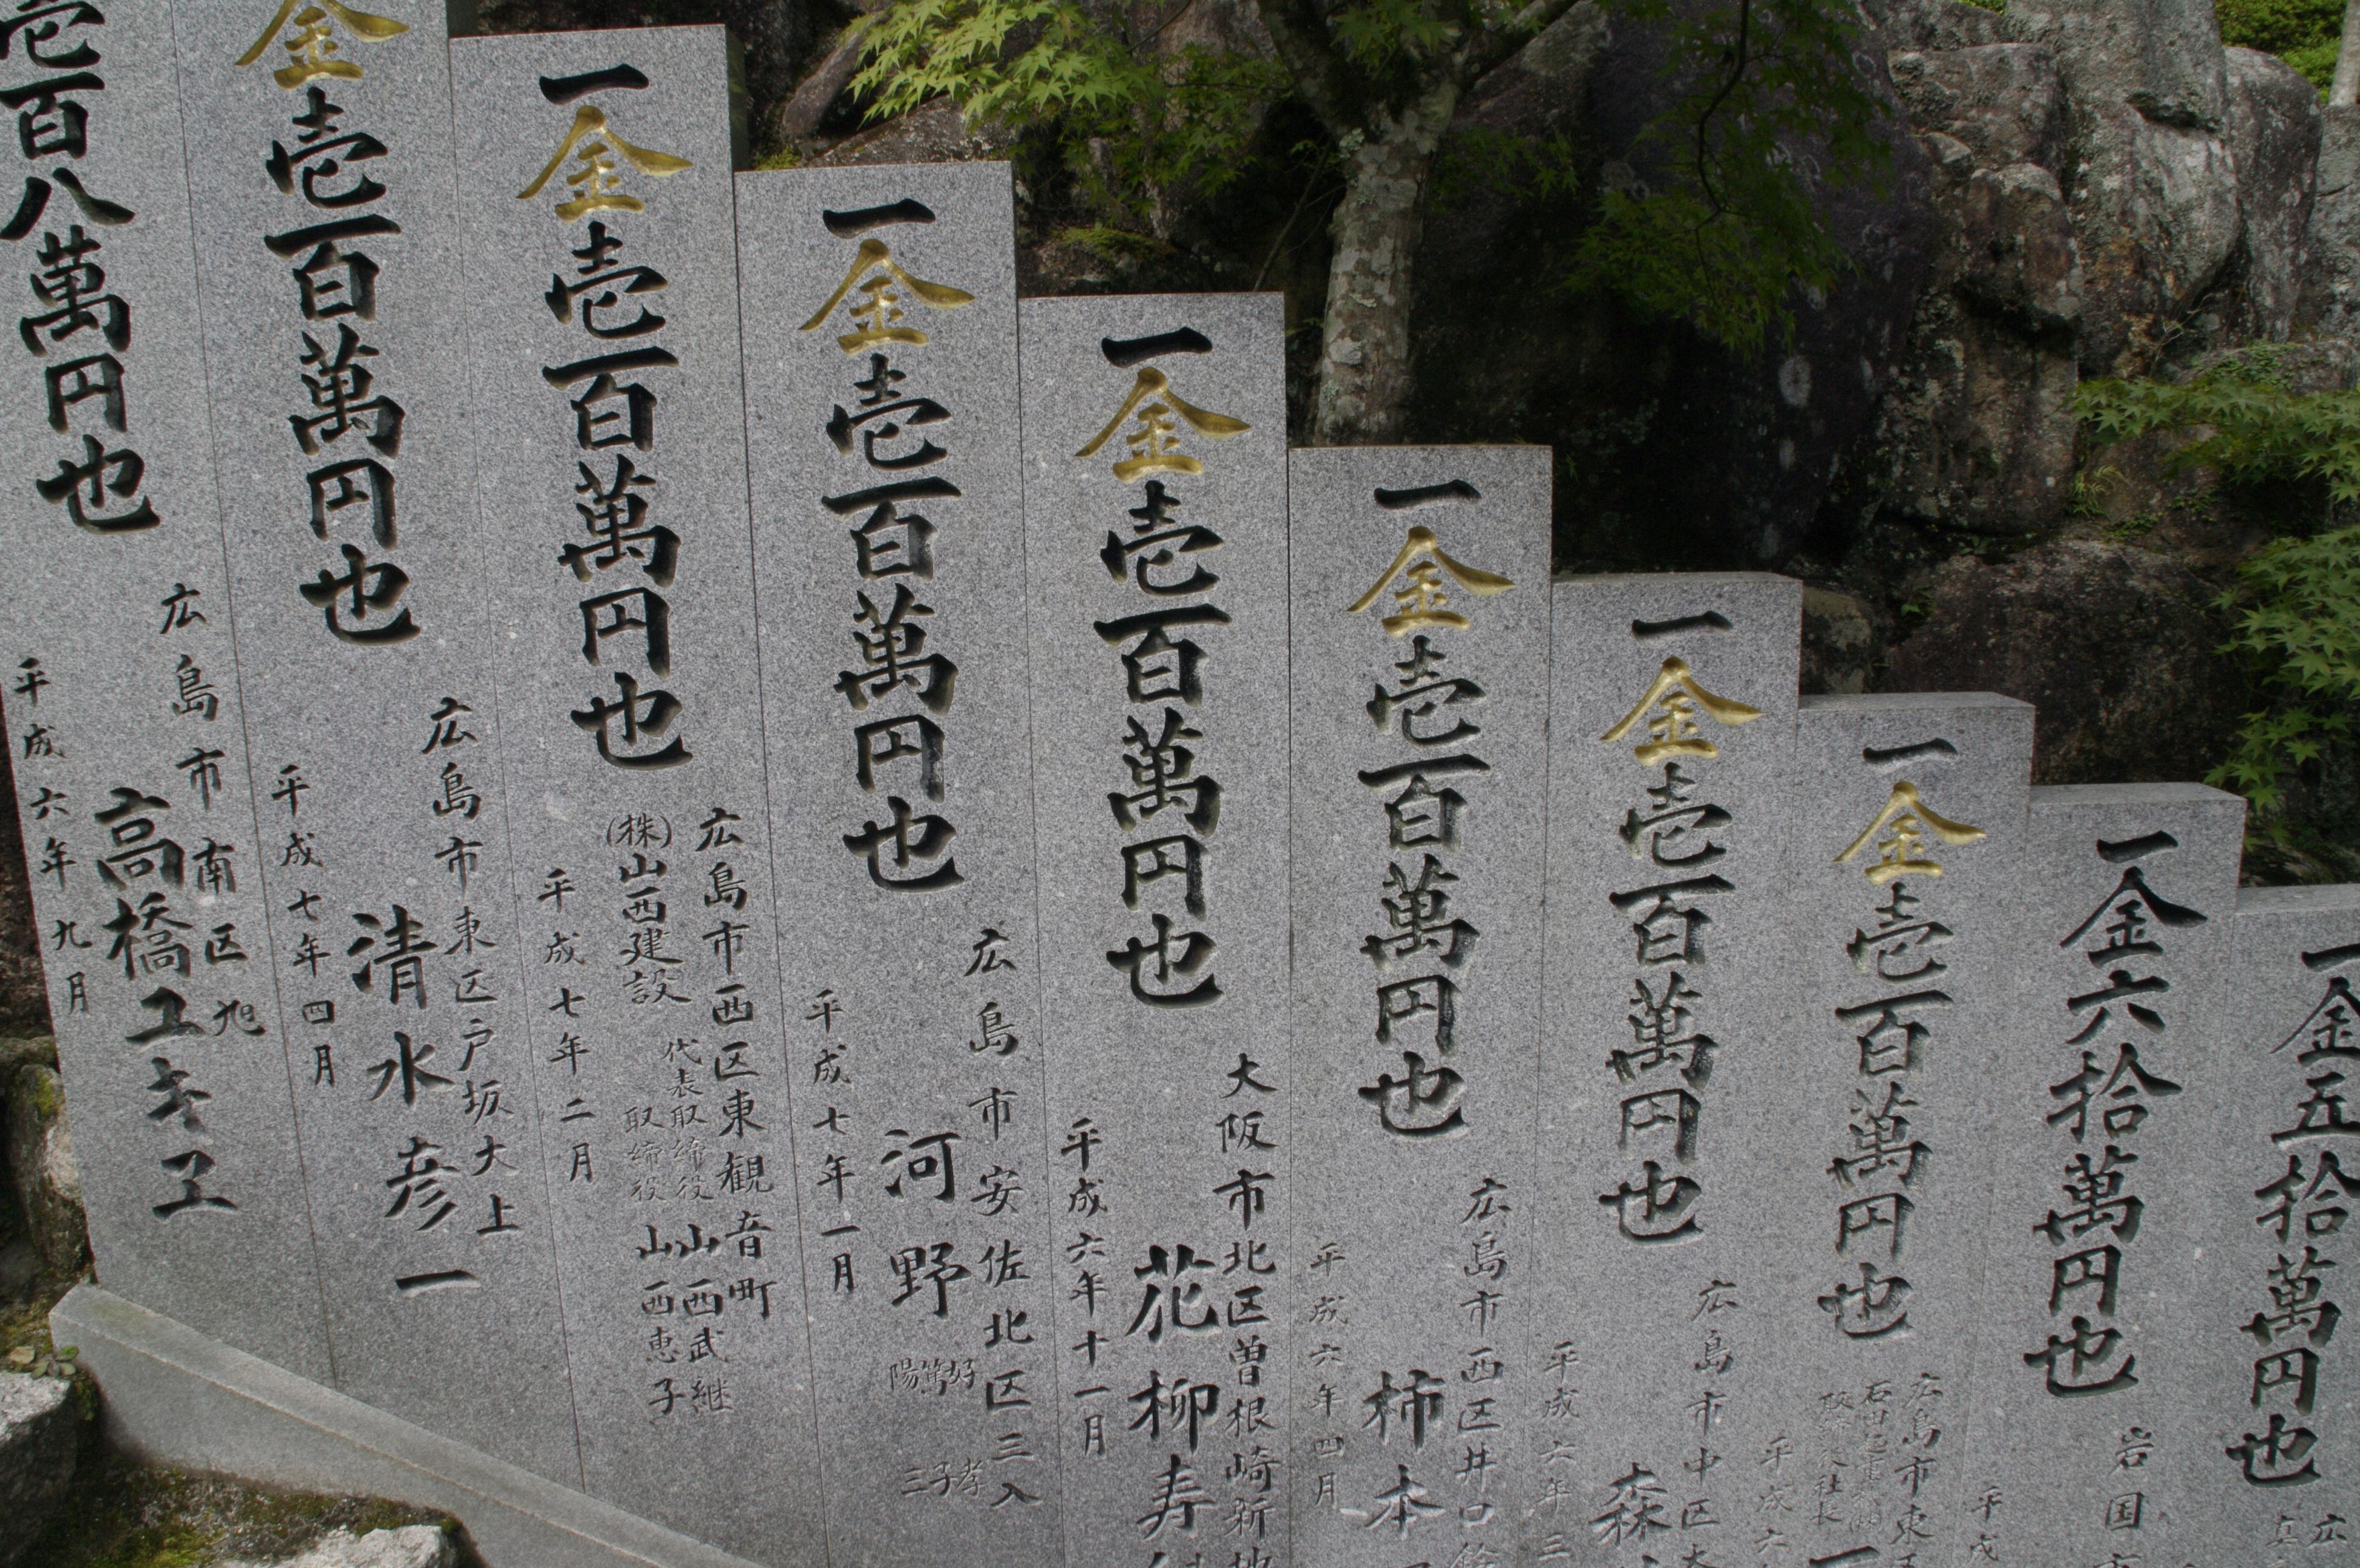 一金五拾萬円也
広
一金六拾萬円也
岩国
平成
一金壱百萬円也
広島市東
取締役社長
平成六
一金壱百萬円也
広島市中区大
森
平成六年三
一金壱百萬円也
広島市西区井口
柿本
平成六年四月
一金壱百萬円也
大阪市北区曽根崎新地
花柳寿
平成六年十一月
一金壱百萬円也
広島市安佐北区三入
河野
好孝
篤子
陽三
平成七年一月
一金壱百萬円也
広島市西区東観音町
(株)山西建設
代表取締役 山西武継
取締役 山西恵子
平成七年二月
金壱百萬円也
広島市東区戸坂大上
清水彦一
平成七年四月
壱百八萬円也
広島市南区旭
高橋ユキエ
平成六年九月